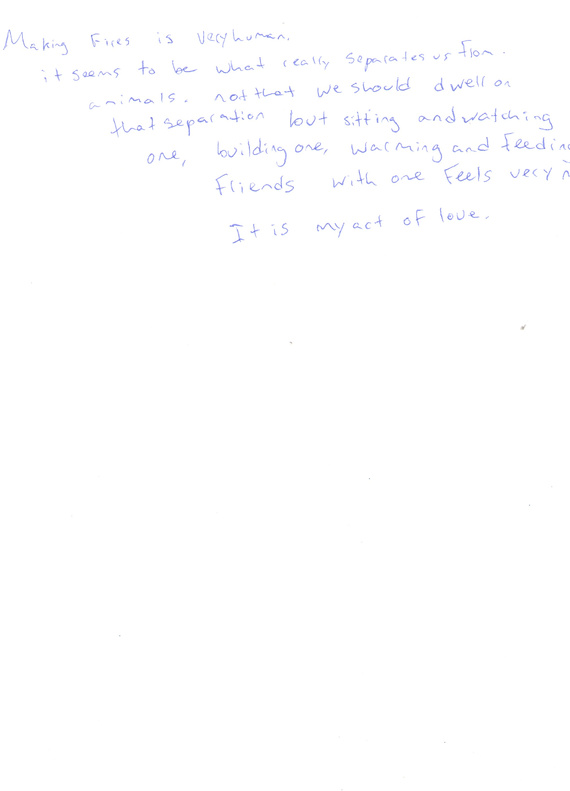 Making Fires is very human.
it seems to be what really separates us from.
animals. not that we should dwell on
that separation but sitting and watching
one, building one, warming and feeding
Friends with one Feels very
It is my act of love.